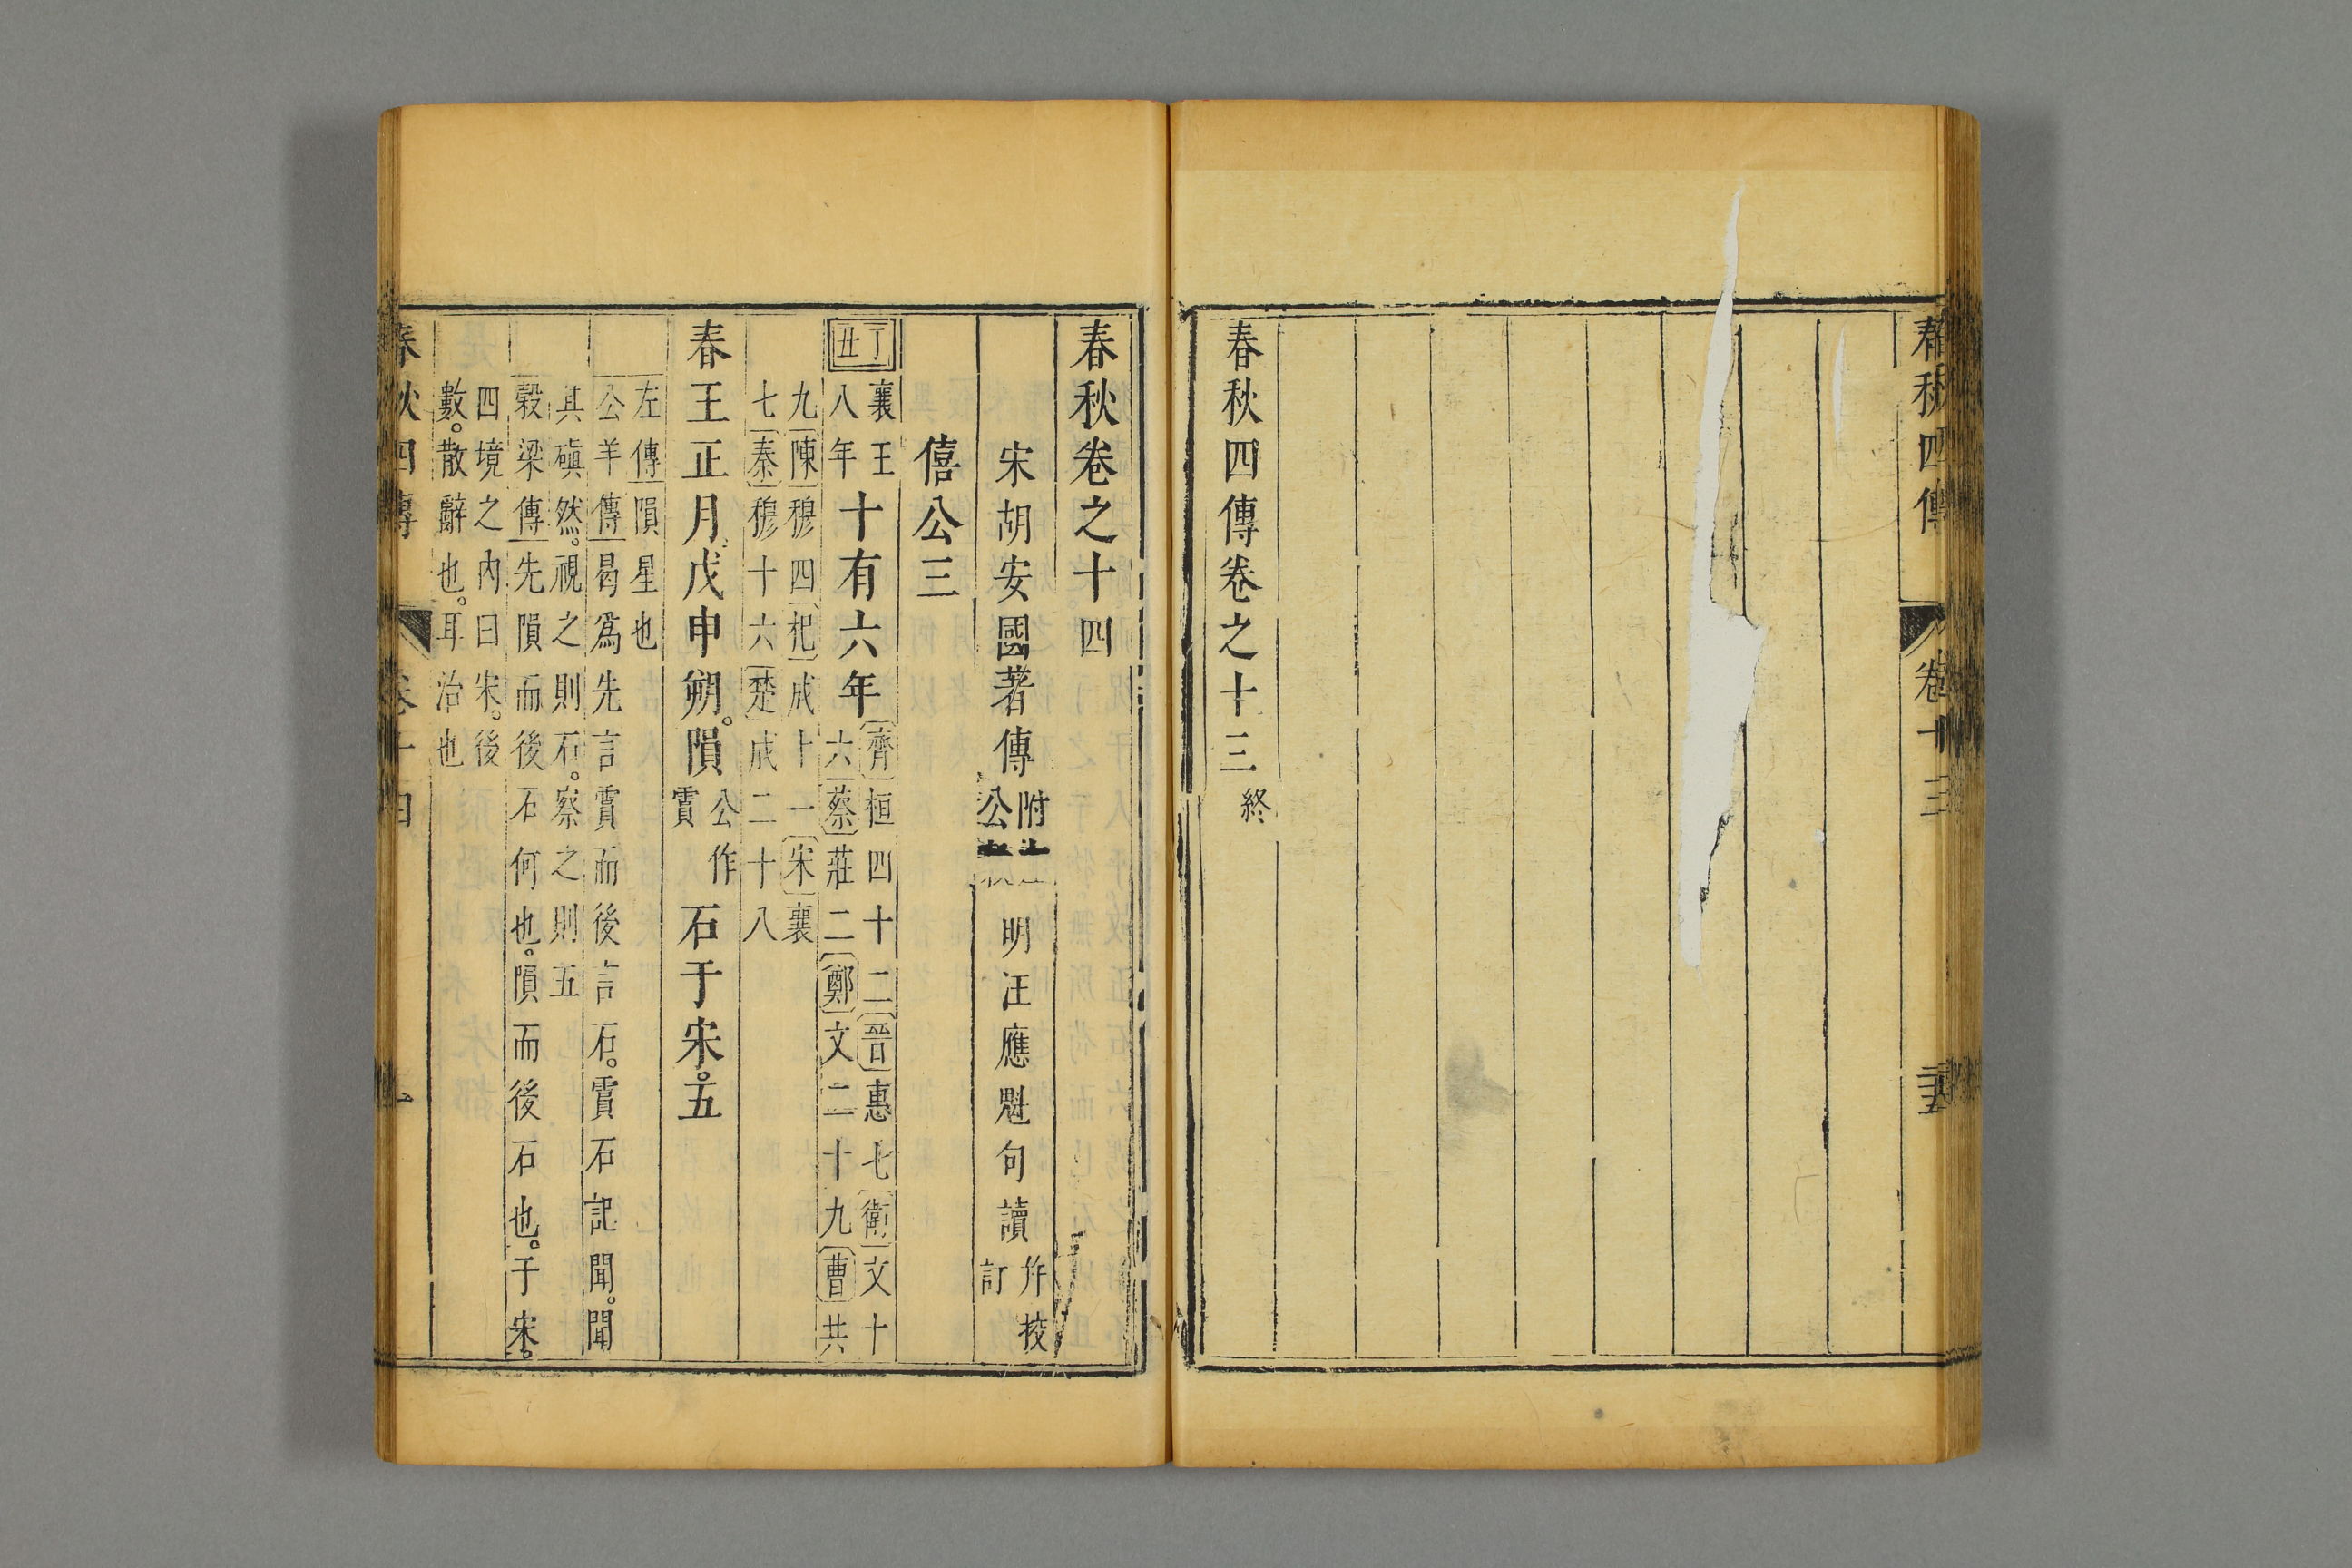 春秋四傳
卷十三
二十五
春秋四傳卷之十三終
春秋卷之十四
宋胡安國著傳
附
公
明汪應魁句讀
作挍
訂
僖公三
丁丑
襄王
八年
十有六年
齊桓四十二晉惠七衛文十
六蔡莊二鄭文二十九曹共
九陳穆四杞成十一宋襄
七秦穆十六楚成二十八
春王正月戊申朔。隕
公作
霣
石于宋。五
左傳隕星也
公羊傳曷爲先言霣而後言石。霣石記聞。聞
其磌然。視之則石。察之則五
穀梁傳先隕而後石何也。隕而後石也。于宋。
四境之內曰宋。後
數。散辭也。耳治也
春秋四傳
卷十四